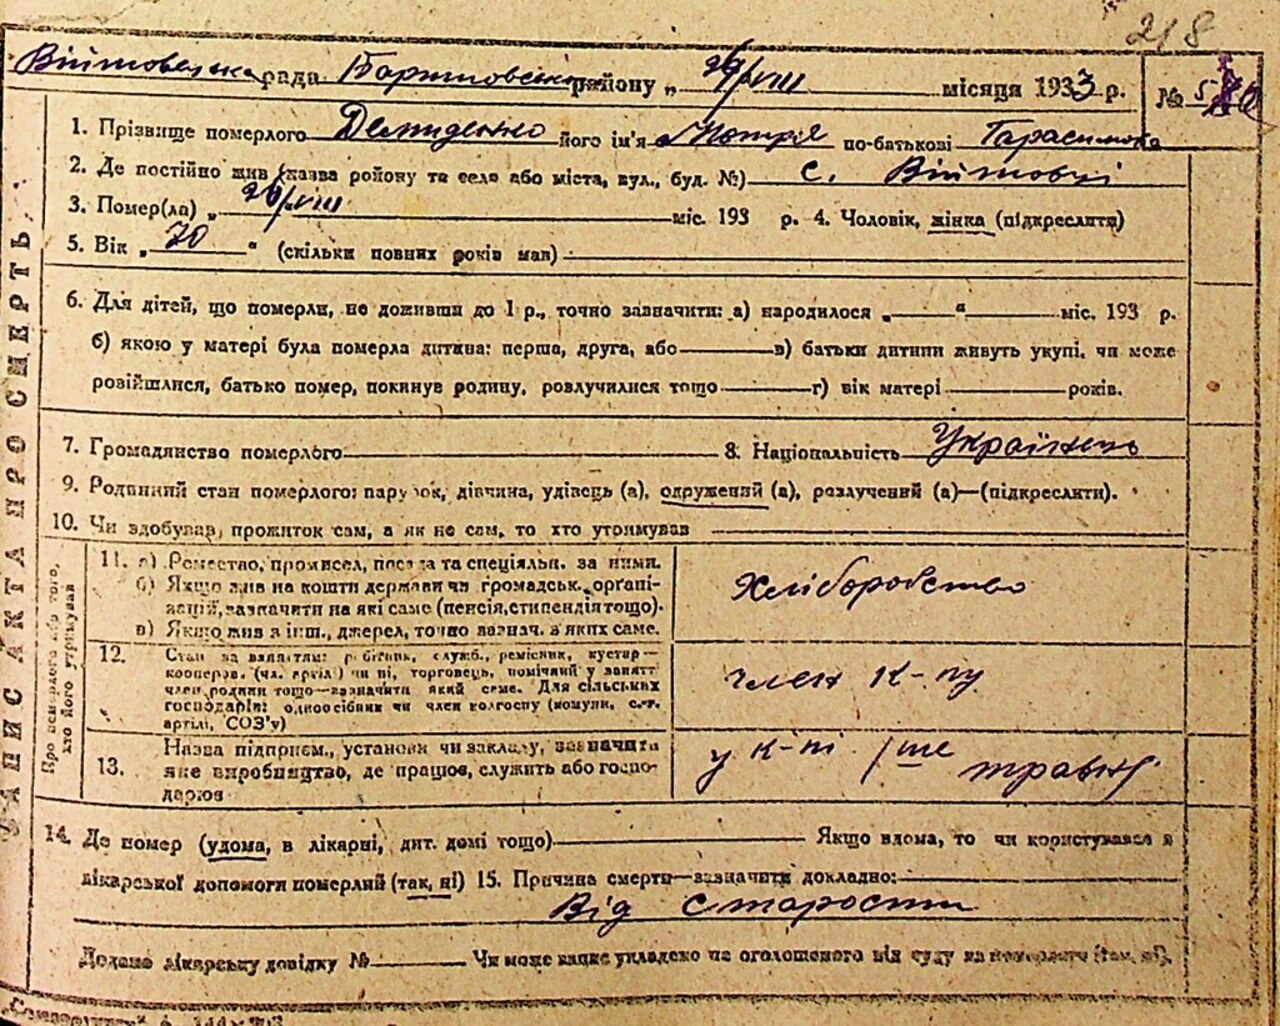 218
Війтовецька рада Баришовського району „ 29/VIII місяця 1933 р. №
1. Прізвище померлого Демиденко його ім'я Мотря по-батькові Гарасимовна
2. Де постійно жив (назва ройону та села або міста, вул., буд. №) с. Війтовці
3. Помер(ла) „ 29/VIII міс. 193 р. 4. Чоловік, жінка (підкреслити)
5. Вік „ 70 “ (скільки повних років мав)
6. Для дітей, що померли, не доживши до 1 р., точно зазначити: а) народилося „ “ міс. 193 р.
б) якою у матері була померла дитина: перша, друга, або в) батьки дитини живуть укупі, чи може
розійшлися, батько помер, покинув родину, розлучилися тощо г) вік матері років.
7. Громадянство померлого 8. Національність Українець
9. Родинний стан померлого: парубок, дівчина, удівець (а), одружений (а), розлучений (а)—(підкреслити).
10. Чи здобував, прожиток сам, а як не сам, то хто утримував
ЗАПИС АКТА ПРО СМЕРТЬ.
Про померлого або того,
хто його утримував
11. а) Ремество, промисел, посада та спеціяльн. за ними.
б) Якщо жив на кошти держави чи громадськ. орґані-
зацій, зазначити на які саме (пенсія, стипендія тощо).
в) Якщо жив з інш., джерел, точно зазнач. з яких саме.
Хліборобство
12. Стан за заняттям: робітник, служб., ремісник, кустар—
кооперов. (чл. артілі) чи ні, торговець, помічний у занятті
член родини тощо—зазначити який саме. Для сільських
господарів: одноосібник чи член колгоспу (комуни, с.-г.
артілі, СОЗ'у)
член к-пу
13. Назва підприєм., установи чи закладу, зазначити
яке виробництво, де працює, служить або госпо-
дарює
у к-пі
14. Де помер (удома, в лікарні, дит. домі тощо) Якщо вдома, то чи користувався з
лікарської допомоги померлий (так, ні) 15. Причина смерти—зазначити докладно:
Від старости
Додано лікарську довідку № Чи може запис укладено на оголошеного від суду за померлого (так, ні).